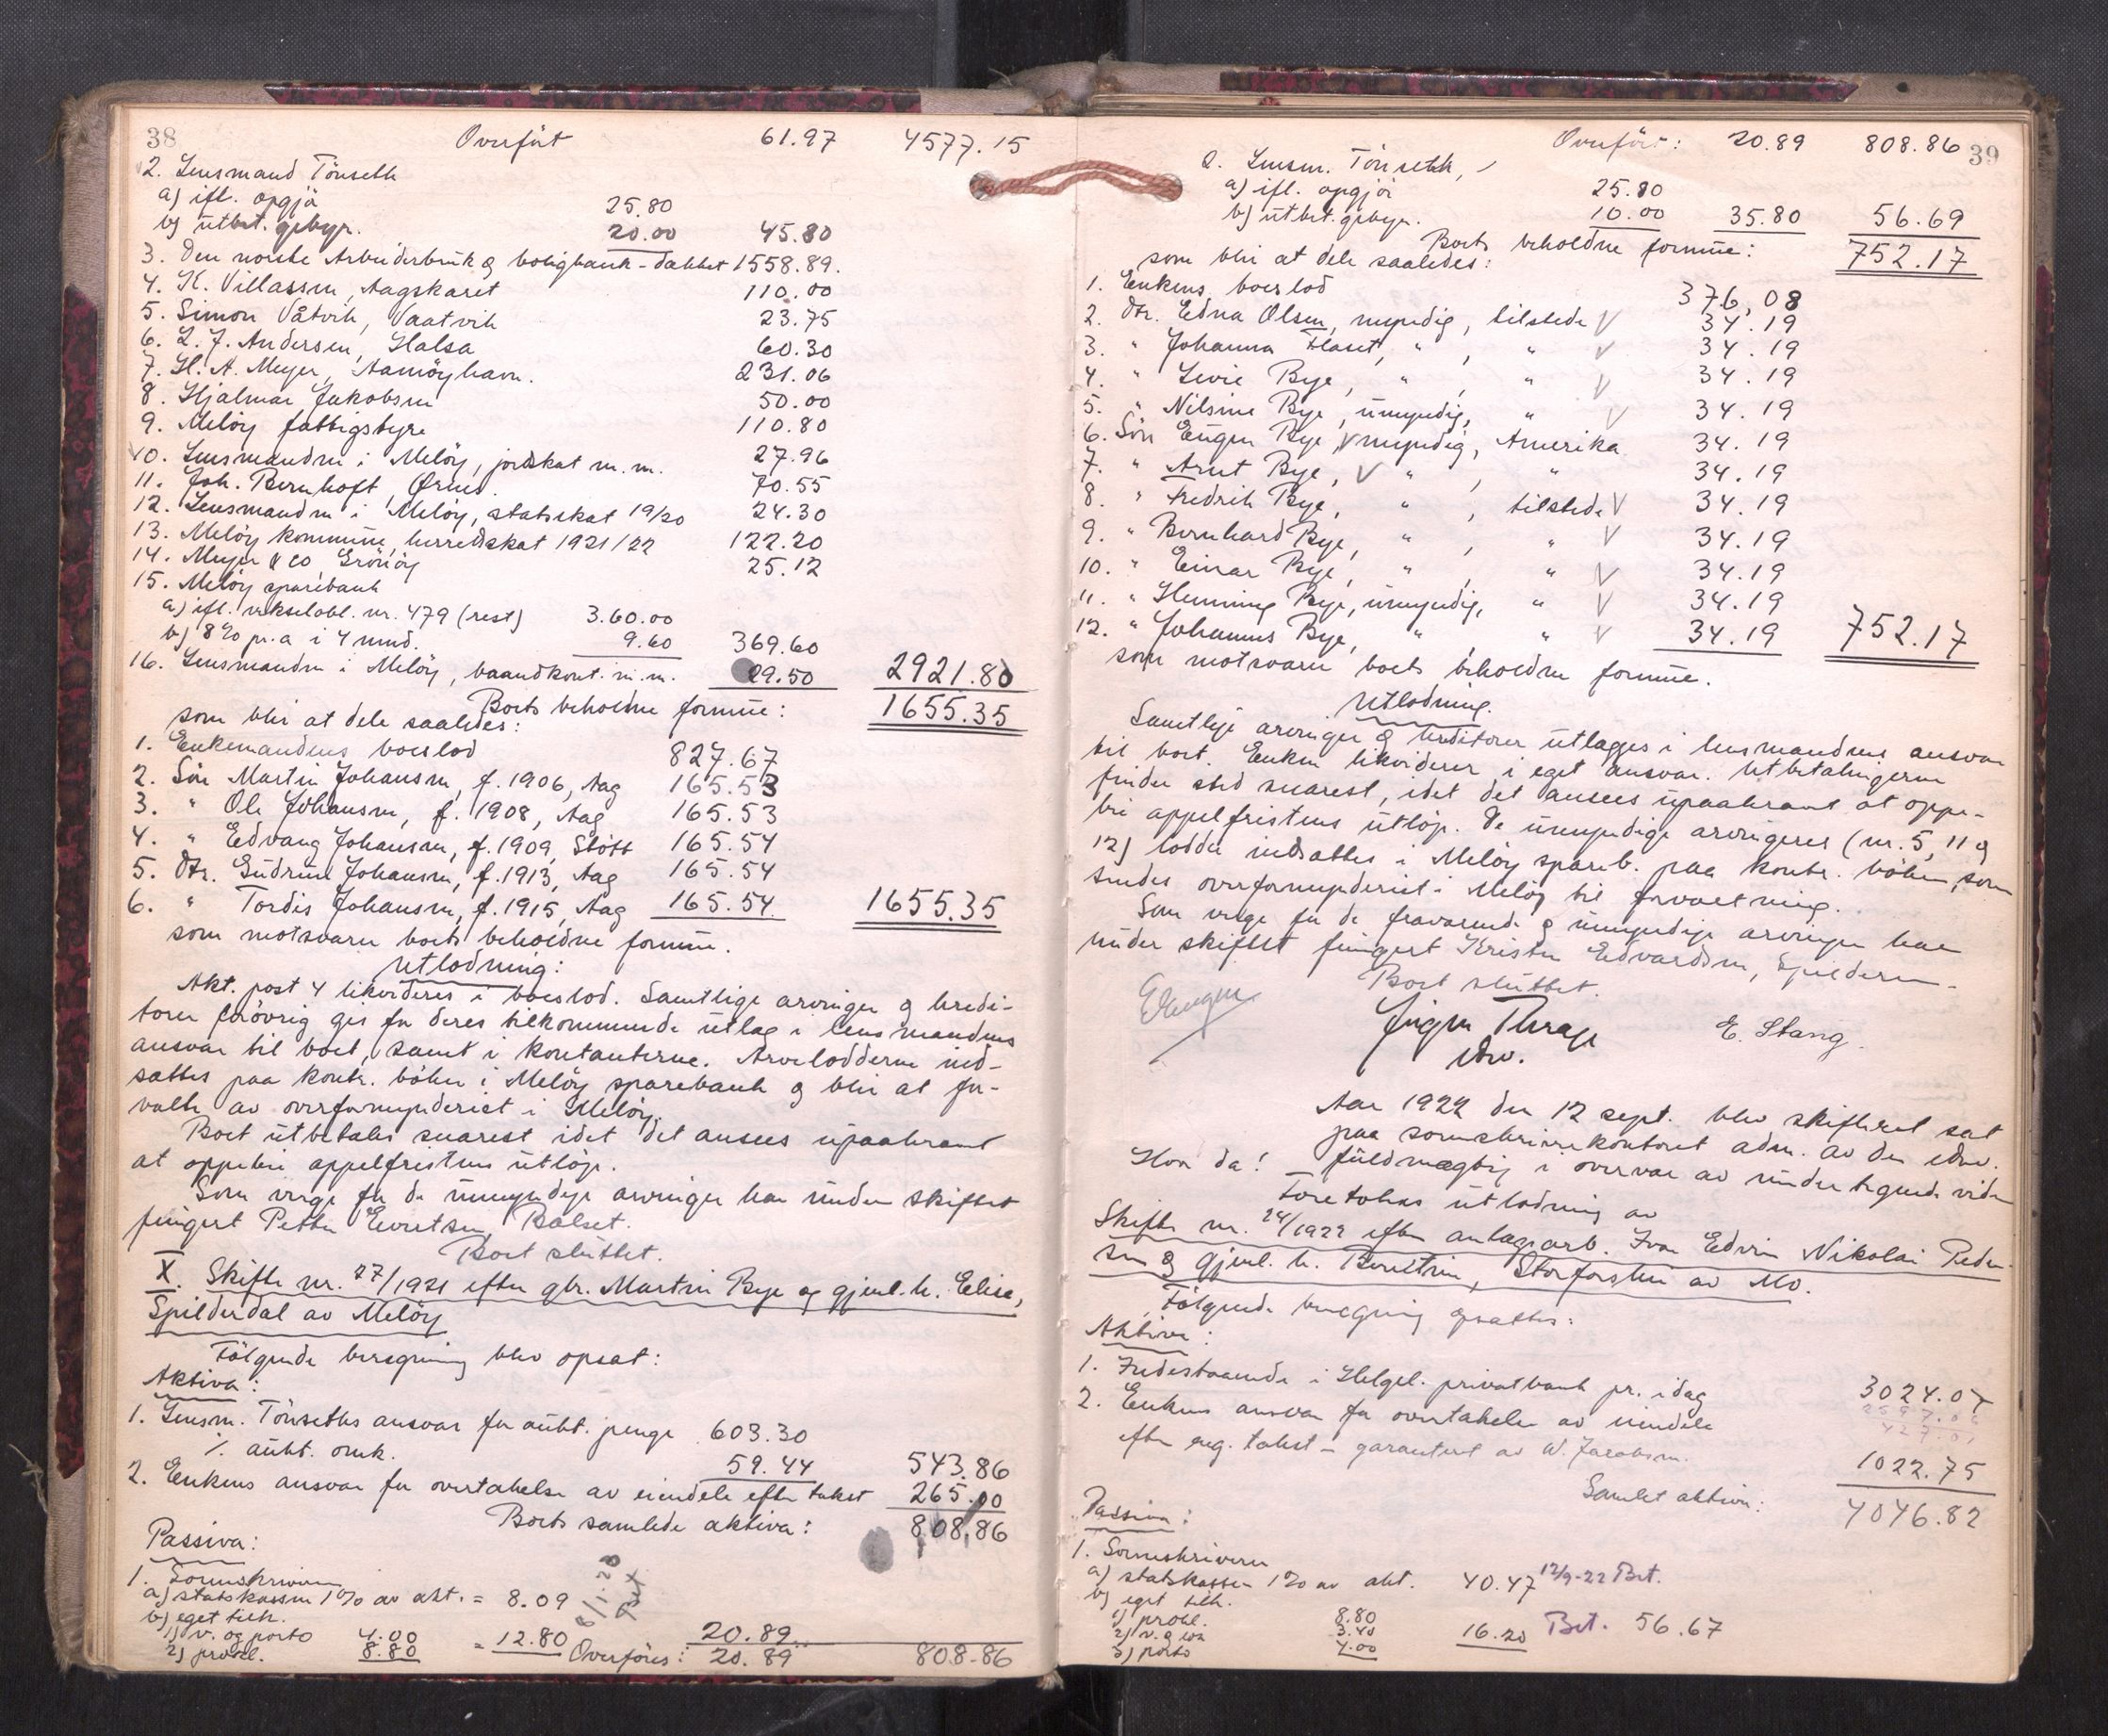 38 Overført 61.97 4577.15
2. Lensmand Tönseth
a) ifl. opgjö 25.80
b) utbet. gebyr. 20.00 45.80
3. Den norske Arbeiderbruk & boligbank - dækket 1558.89.
4. K. Villassen, Aagskaret 110.00
5. Simon Våtvik, Vaatvik 23.75
6. L. J. Andersen, Halsa 60.30
7. H. A. Meyer, Aamöyhavn. 231.06
8. Hjalmar Jakobsen 50.00
9. Melöy fattigstyre 110.80
10. Lensmanden i Melöy, jordskat m.m. 27.96
11. Joh. Bernhoft, Ørnes. 70.55
12. Lensmanden i Melöy, statsskat 19/20 24.30
13. Melöy kommune, herredskat 1921/22 122.20
14. Meyer & co Grönöy 25.12
15. Melöy sparebank
a) ifl. vekselobl. nr. 479 (rest) 360.00
b) 8% pr.a i 4 mnd. 9.60 369.60
16. Lensmanden i Melöy, baandkont. m.m. 29.50 2921.80
Boets beholdne formue: 1655.35
som blir at dele saaledes:
1. Enkemandens boeslod 827.67
2. Sön Martin Johansen, f. 1906, Aag 165.53
3. " Ole Johansen, f. 1908, Aag 165.53
4. " Edvang Johansen, f. 1909, Stött 165.54
5. Dtr. Gudrun Johansen, f. 1913, Aag 165.54
6. " Tordis Johansen, f. 1915, Aag 165.54 1655.35
som motsvarer boets beholdne formue.
Utlodning:
Akt. post 4 likvideres i boeslod. Samtlige arvinger & kredi-
torer forövrig gis for deres tilkommende utlæg i lensmandens
ansvar til boet, samt i kontanterne. Arvelodderne ind-
sættes paa kontr. böker i Melöy sparebank & blir at for-
valte av overformynderiet i Melöy.
Boet utbetales snarest idet det ansees upaakrævet
at oppebie appelfristens utlöp.
Som verge for de umyndige arvinger har under skiftet
fungert Petter Evertsen, Bolset.
Boet sluttet.
X. Skifte nr. 27/1921 efter gbr. Martin Bye og gjenl. h. Elise,
Spilderdal av Melöy
Fölgende beregning blev opsat:
Aktiva:
1. Lensm. Tönseths ansvar for aukt. penge 603.30
÷ aukt. omk. 59.44 543.86
2. Enkens ansvar for overtakelse av eiendele efter takst 265.00
Boets samlede aktiva: 808.86
Passiva:
1. Sorenskriveren
a) statskassen 1% av akt. = 8.09
b) eget tilk.
1) v. og porto 4.00
2) prokl. 8.80 = 12.80 20.89
Overföres: 20.89 808.86
Overfört: 20.89 808.86 39
2. Lensm. Tönseth,
a) ifl. opgjör 25.80
b) utbet. gebyr. 10.00 35.80 56.69
Boets beholdne formue: 752.17
som blir at dele saaledes:
1. Enkens boeslod 376,08
2. Dtr. Edna Olsen, myndig, tilstede V 34.19
3. " Johanna Flaset, " , " V 34.19
4. " Levie Bye, " , " V 34.19
5. " Nilsine Bye, umyndig, " V 34.19
6. Sön Eugen Bye, V myndig, Amerika 34.19
7. " Arnt Bye, V " , " 34.19
8. " Fredrik Bye, " , tilstede V 34.19
9. " Bernhard Bye, " , " V 34.19
10. " Einar Bye, " , " V 34.19
11. " Henning Bye, umyndig, " V 34.19
12. " Johannes Bye, " , " V 34.19 752.17
som motsvarer boets beholdne formue.
Utlodning.
Samtlige arvinger & kreditorer utlægges i lensmandens ansvar
til boet. Enken likviderer i eget ansvar. Utbetalingerne
finder sted snarest, idet det ansees upaakrævet at oppe-
bie appelfristens utlöp. De umyndige arvingeres (nr. 5, 11 &
12) lodder indsættes i Melöy spareb. paa kontr. böker, som
sendes overformynderiet i Melöy til forvaltning.
Som verge for de fraværende & umyndige arvinger har
under skiftet fungert Kristen Edvardsen, Spilderen.
Boet sluttet.
E. Stang.
edsv.
Aar 1922 den 12 sept. blev skifteret sat
paa sorenskriverkontoret adm. av den edsv.
fuldmægtig i overvær av undertegnede vidne
Hvor da!
Foretokes utlodning av
Skifte nr. 24/1922 efter anlægsarb. Ivar Edvin Nikolai Peder-
sen & gjenl. h. Berettine, Storforshei av Mo.
Fölgende beregning opsattes:
Aktiva:
1. Indestaaende i Helgel. privatbank pr. idag 3024.07
2. Enkens ansvar for overtakelse av eiendele
efter reg. takst - garantert av W. Jacobsen. 1022.75
Samlet aktiva: 4046.82
Passiva:
1. Sorenskriveren
a) statskassen 1% av akt. 40.47 12/9-22 Bet.
b) eget tilk.
1) prokl. 8.80
2) v. & 3.40
3) porto 4.00 16.20 Bet. 56.67